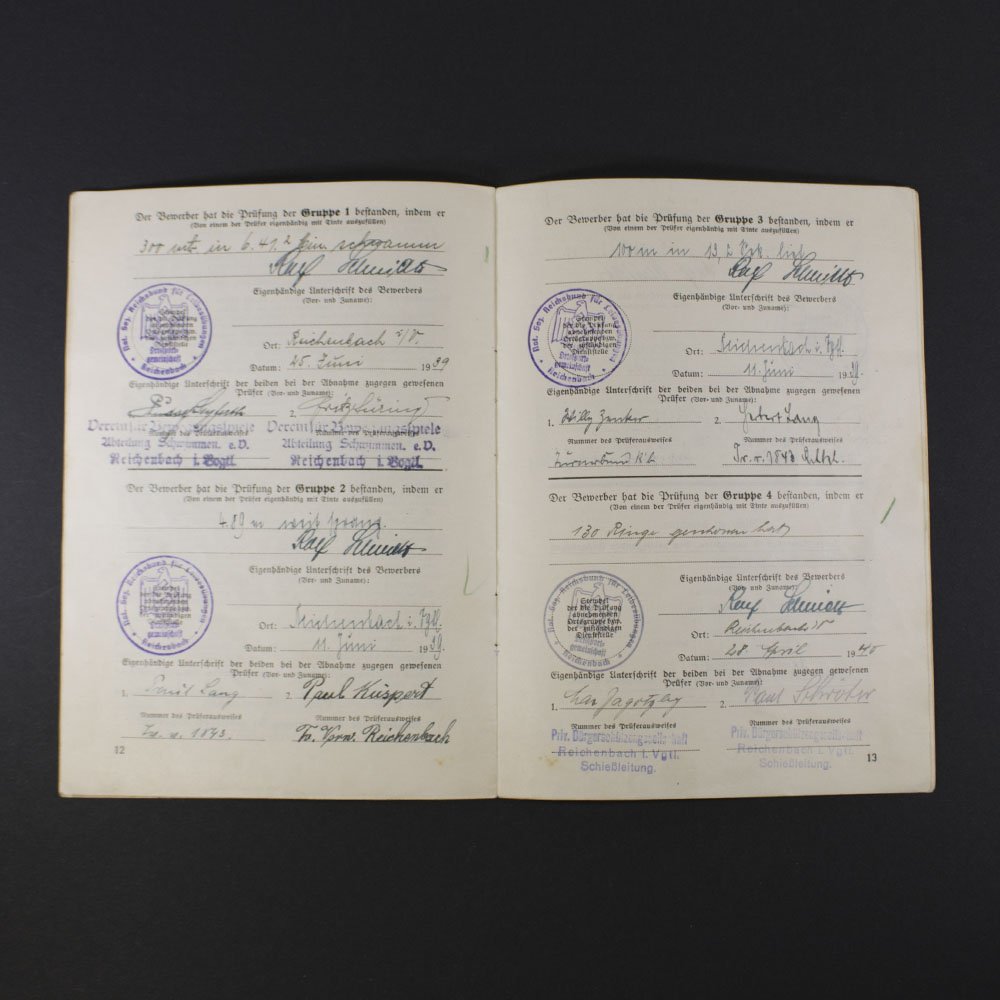 Der Bewerber hat die Prüfung der Gruppe 1 bestanden, indem er
(Von einem der Prüfer eigenhändig mit Tinte auszufüllen)
300 mtr in 6.41.2 schwamm
Eigenhändige Unterschrift des Bewerbers
(Vor- und Zuname):
Nat. Soz. Reichsbund für Leibesübungen
Reichenbach
Ort: Reichenbach i/V.
Datum: 25. Juni 1939
Eigenhändige Unterschrift der beiden bei der Abnahme zugegen gewesenen
Prüfer (Vor- und Zuname):
2.
Verein für Bewegungsspiele Verein für Bewegungsspiele
Nummer des Prüferausweises Nummer des Prüferausweises
Abteilung Schwimmen. e.V. Abteilung Schwimmen. e.V.
Reichenbach i. Vogtl. Reichenbach i. Vogtl.
Der Bewerber hat die Prüfung der Gruppe 2 bestanden, indem er
(Von einem der Prüfer eigenhändig mit Tinte auszufüllen)
4.89 m weit sprang.
Eigenhändige Unterschrift des Bewerbers
(Vor- und Zuname):
Nat. Soz. Reichsbund für Leibesübungen
Reichenbach
Ort: Reichenbach i. Vgtl.
Datum: 11. Juni 1939.
Eigenhändige Unterschrift der beiden bei der Abnahme zugegen gewesenen
Prüfer (Vor- und Zuname):
1. Lang 2. Paul Küspert
Nummer des Prüferausweises Nummer des Prüferausweises
1843. Reichenbach
12
Der Bewerber hat die Prüfung der Gruppe 3 bestanden, indem er
(Von einem der Prüfer eigenhändig mit Tinte auszufüllen)
100 m in 13,2 Sek lief
Eigenhändige Unterschrift des Bewerbers
(Vor- und Zuname):
Nat. Soz. Reichsbund für Leibesübungen
Stempel
der die Prüfung
abnehmenden
Ortsgruppe bzw.
der zuständigen
Dienststelle
gemeinschaft
Reichenbach
Ort: Reichenbach i. Vgtl.
Datum: 11. Juni 1939
Eigenhändige Unterschrift der beiden bei der Abnahme zugegen gewesenen
Prüfer (Vor- und Zuname):
1. Willy Zenker 2. Lang
Nummer des Prüferausweises Nummer des Prüferausweises
1843
Der Bewerber hat die Prüfung der Gruppe 4 bestanden, indem er
(Von einem der Prüfer eigenhändig mit Tinte auszufüllen)
130 Ringe geschossen hat
Eigenhändige Unterschrift des Bewerbers
(Vor- und Zuname):
Nat. Soz. Reichsbund für Leibesübungen
Stempel
der die Prüfung
abnehmenden
Ortsgruppe bzw.
der zuständigen
Dienststelle
gemeinschaft
Reichenbach
Ort: Reichenbach i/V
Datum: 28 April 1940
Eigenhändige Unterschrift der beiden bei der Abnahme zugegen gewesenen
Prüfer (Vor- und Zuname):
1. 2. Paul Schröder
Nummer des Prüferausweises Nummer des Prüferausweises
Priv. Bürgerschützengesellschaft Priv. Bürgerschützengesellschaft
Reichenbach i. Vgtl. Reichenbach i. Vgtl.
Schießleitung. Schießleitung.
13